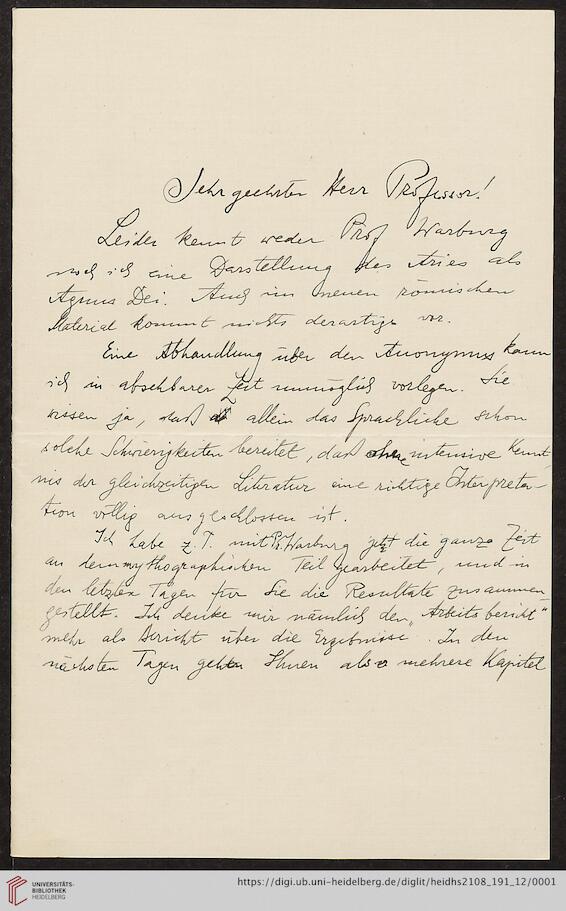 Sehr geehrter Herr Professor!
Leider kennt weder Prof Warburg
noch ich eine Darstellung des Aries als
Agnus Dei. Auch im neuen römischen
Material kommt nichts derartiges vor.
Eine Abhandlung über den Anonymus kann
ich in absehbarer Zeit unmöglich vorlegen. Sie
wissen ja, daß allein das Sprachliche schon
solche Schwierigkeiten bereitet, daß ohne intensive Kennt-
nis der gleichzeitigen Literatur eine richtige Interpreta-
tion völlig ausgeschlossen ist.
Ich habe z. T. mit Pr. Warburg jetzt die ganze Zeit
an dem mythographischen Teil gearbeitet, und in
den letzten Tagen für Sie die Resultate zusammen
gestellt. Ich denke mir nämlich den „Arbeitsbericht"
mehr als Bericht über die Ergebnisse. In den
nächsten Tagen gehen Ihnen also mehrere Kapitel
UNIVERSITÄTS-
BIBLIOTHEK
HEIDELBERG
https://digi.ub.uni-heidelberg.de/diglit/heidhs2108_191_12/0001